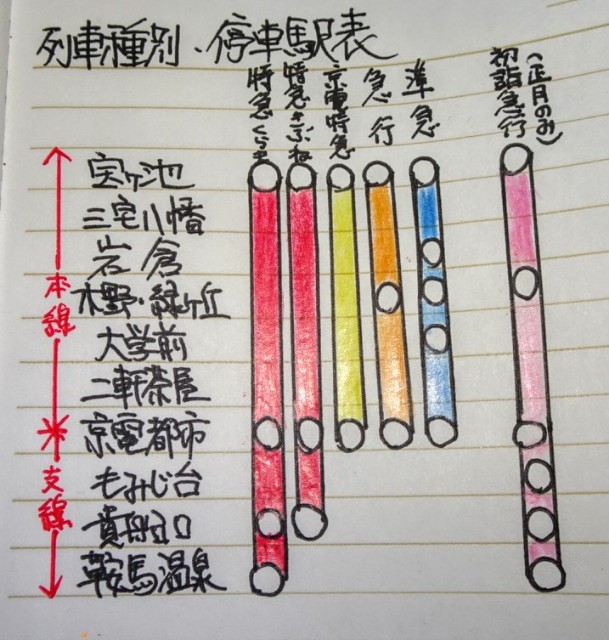 列車種別・停車駅表
特急くらま
特急きぶね
京電特急
急行
準急
初詣急行
(正月のみ)
宝ヶ池
三宅八幡
岩倉
木野・緑ヶ丘
大学前
二軒茶屋
京電都市
もみじ台
貴船口
鞍馬温泉
本線
支線